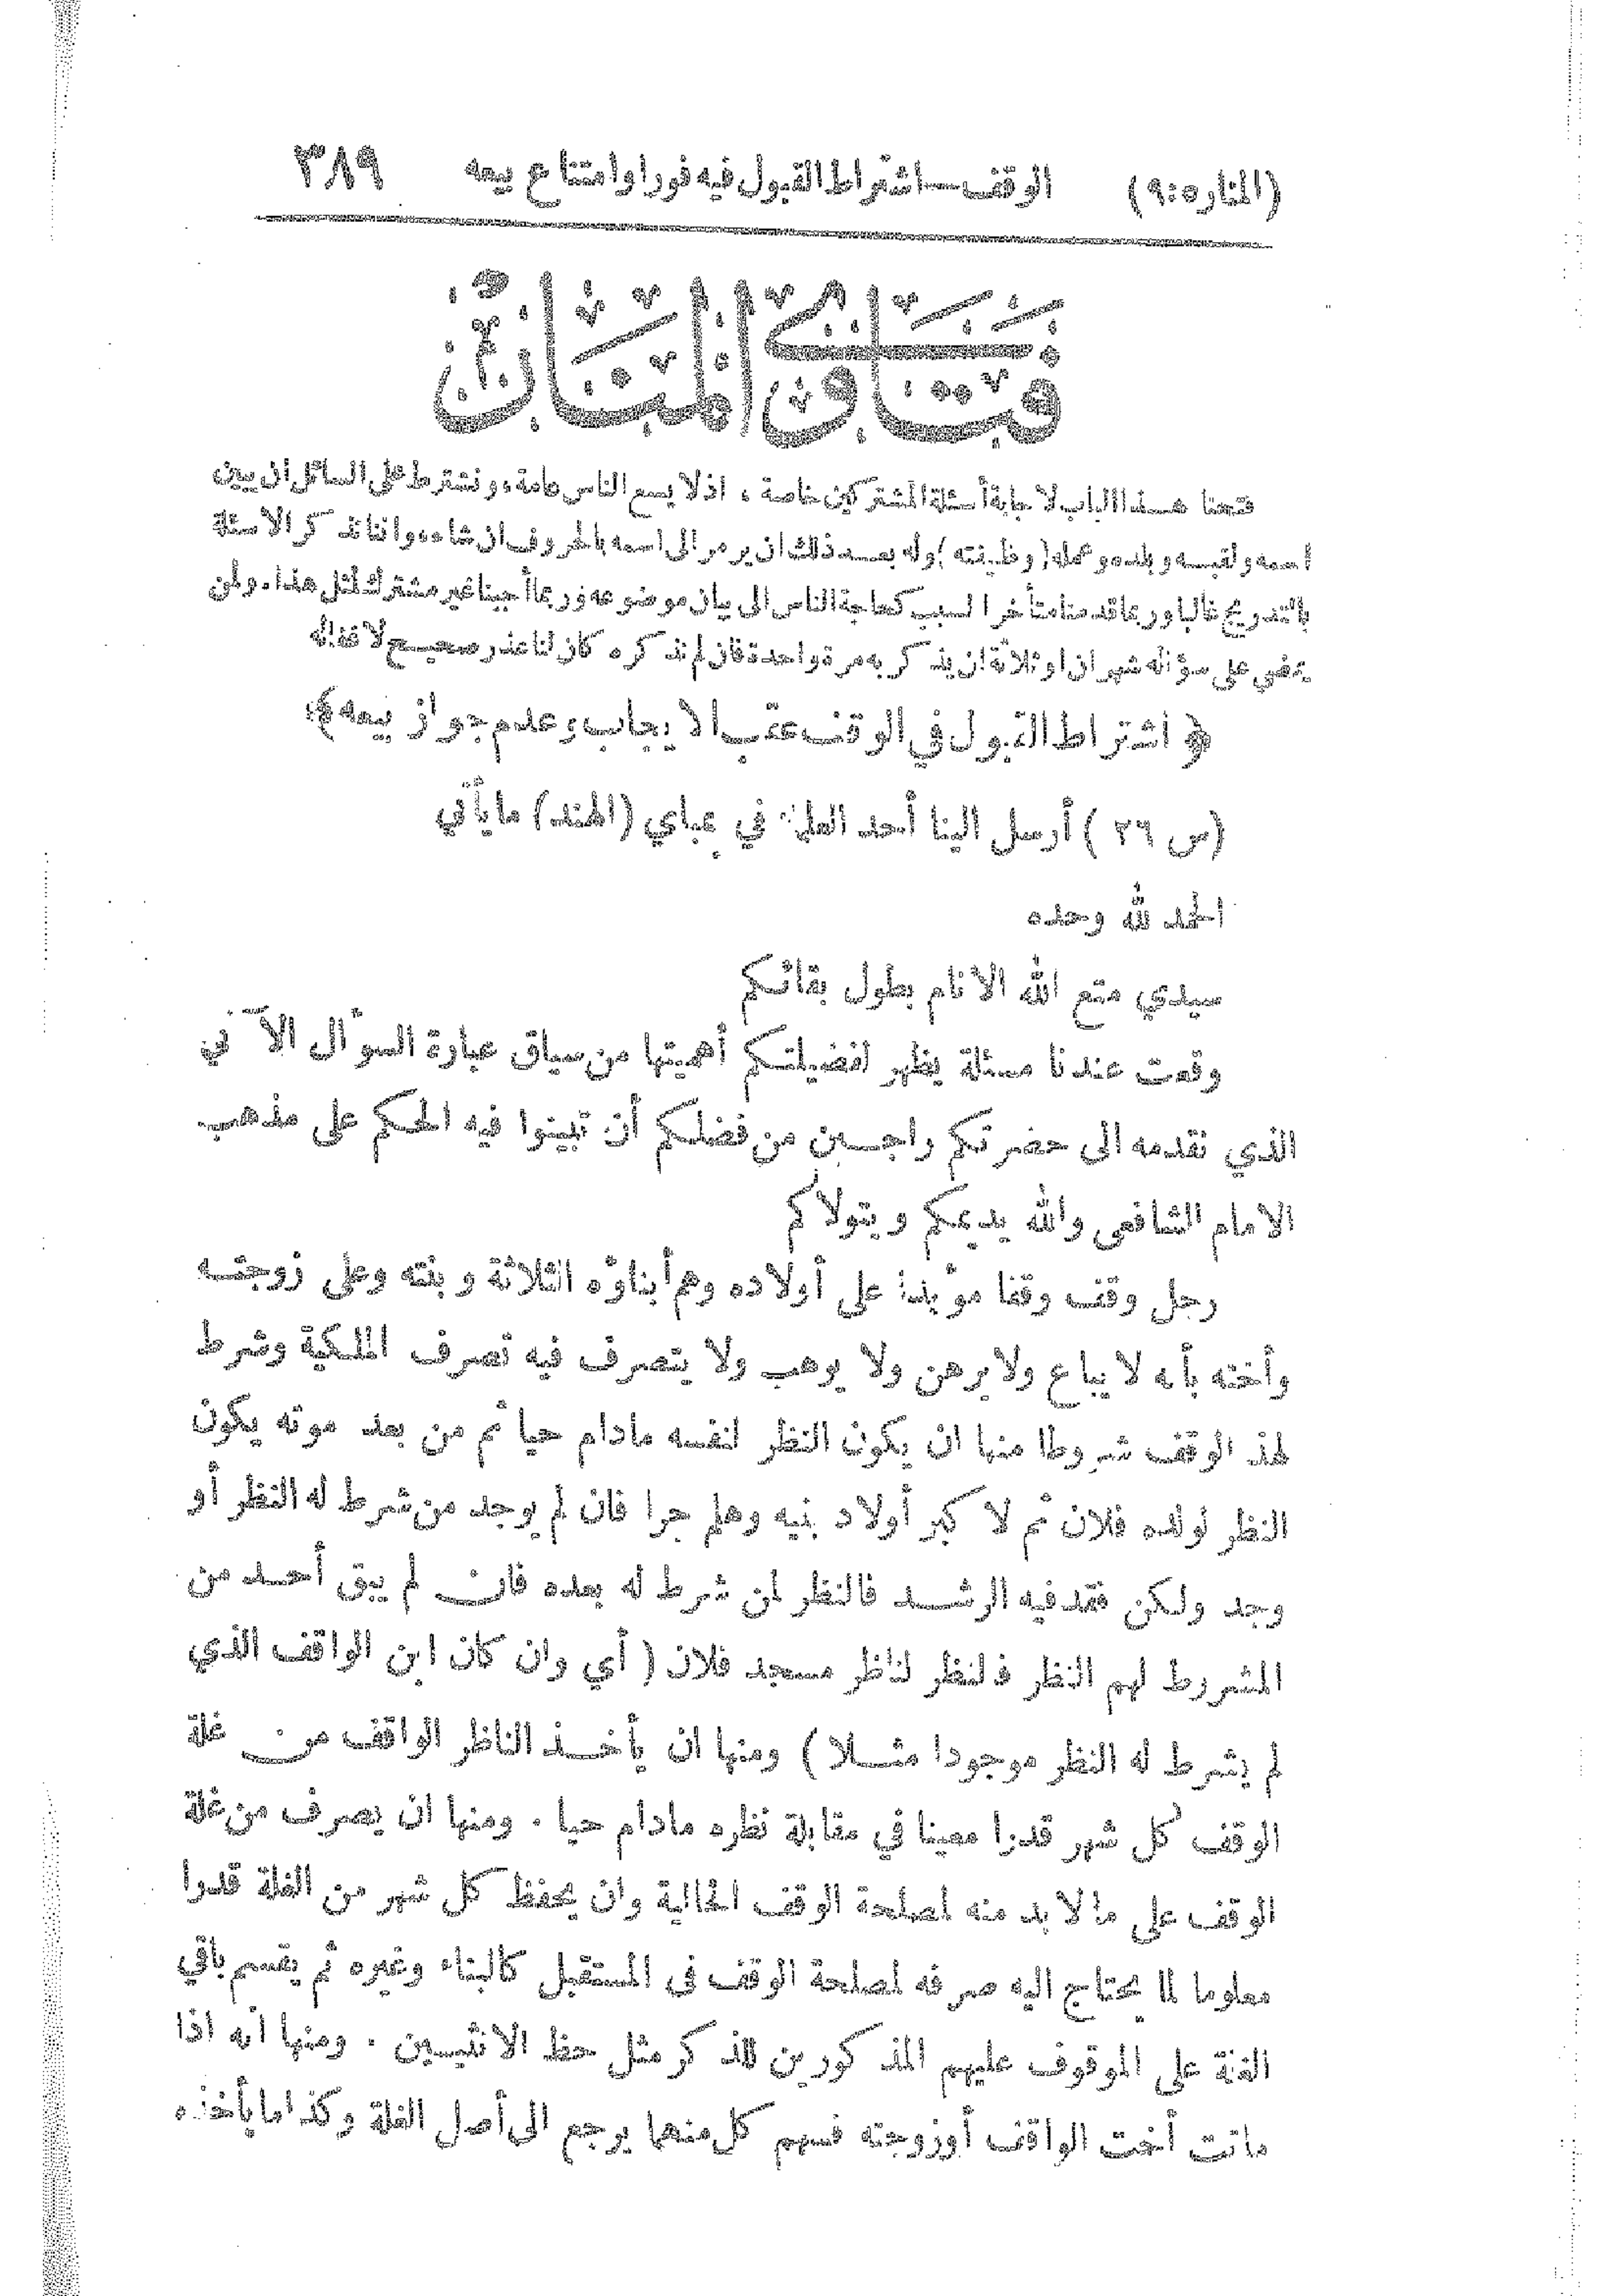 (المنار ٥:٩) الوقف — اشتراط القبول فيه فورا وامتناع بيعه ٣٨٩
فتاوى المنار
فتحنا هذا الباب لاجابة أسئلة المشتركين خاصة ، اذ لا يسع الناس عامة، ونشترط على السائل ان يبين
اسمه ولقبه وبلده وعمله (وظيفته) وله بعد ذلك ان يرمز الى اسمه بالحروف ان شاء، واننا نذكر الاسئلة
بالتدريج غالبا وربما قدمنا متأخرا لسبب كحاجة الناس الى بيان موضوعه وربما أجبنا غير مشترك لمثل هذا. ولمن
يمضي على سؤاله شهران او ثلاثة ان يذكر به مرة واحدة فان لم نذكره كان لنا عذر صحيح لاغفاله
﴿ اشتراط القبول في الوقف عقب الايجاب، وعدم جواز بيعه ﴾
(س ٢٦ ) أرسل الينا أحد العلماء في بمباي (الهند) ما يأتي
الحمد لله وحده
سيدي متع الله الانام بطول بقائكم
وقعت عندنا مسئلة يظهر لفضيلتكم أهميتها من سياق عبارة السوءال الآتي
الذي نقدمه الى حضرتكم راجين من فضلكم أن تبينوا فيه الحكم على مذهب
الامام الشافعي والله يديمكم ويتولاكم
رجل وقف وقفا موءبدا على أولاده وهم أبناوءه الثلاثة وبنته وعلى زوجته
وأخته بأنه لا يباع ولا يرهن ولا يوهب ولا يتصرف فيه تصرف الملكية وشرط
لهذ الوقف شروطا منها ان يكون النظر لنفسه مادام حيا ثم من بعد موته يكون
النظر لولده فلان ثم لاكبر أولاد بنيه وهلم جرا فان لم يوجد من شرط له النظر أو
وجد ولكن فقد فيه الرشد فالنظر لمن شرط له بعده فان لم يبق أحد من
المشروط لهم النظر فالنظر لناظر مسجد فلان ( أي وان كان ابن الواقف الذي
لم يشرط له النظر موجودا مثلا ) ومنها ان يأخذ الناظر الواقف من غلة
الوقف كل شهر قدرا معينا في مقابلة نظره مادام حيا . ومنها ان يصرف من غلة
الوقف على مالا بد منه لمصلحة الوقف الحالية وان يحفظ كل شهر من الغلة قدرا
معلوما لما يحتاج اليه صرفه لمصلحة الوقف في المستقبل كالبناء وغيره ثم يقسم باقي
الغلة على الموقوف عليهم المذكورين للذكر مثل حظ الانثيين . ومنها انه اذا
ماتت أخت الواقف أو زوجته فسهم كل منهما يرجع الى أصل الغلة وكذا ما يأخذه